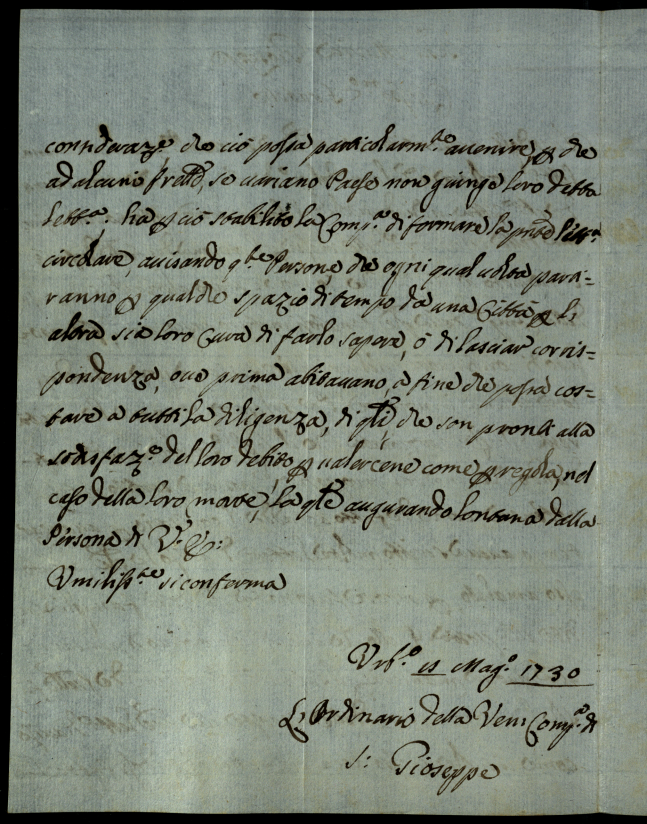 consideraz.e che ciò possa particolarm.te avvenire, che
ad alcuni frelli, se variano Paese non giunge loro detta
lett.a; ha p ciò stabilito la Comp.a di formare la pnte lett.a
circolare, avisando q.te Persone, che ogni qual volta parti-
ranno p qualche spazio di tempo da una Città p l'
altra sia loro cura di farlo sapere, ó di lasciar corris-
pondenza, ove prima abitavano, a fine che possa cos-
tare a tutti la diligenza, di qlli, che son pronti alla
sodisfaz.e del loro debito, p valercene come p regola, nel
caso della loro morte, la qle augurando lontana dalla
Persona di V.S. &:
Umiliss.te si conferma
Urb.o 11 Mag.o 1730
L'Ordinario della Ven: Comp.a di
S: Gioseppe